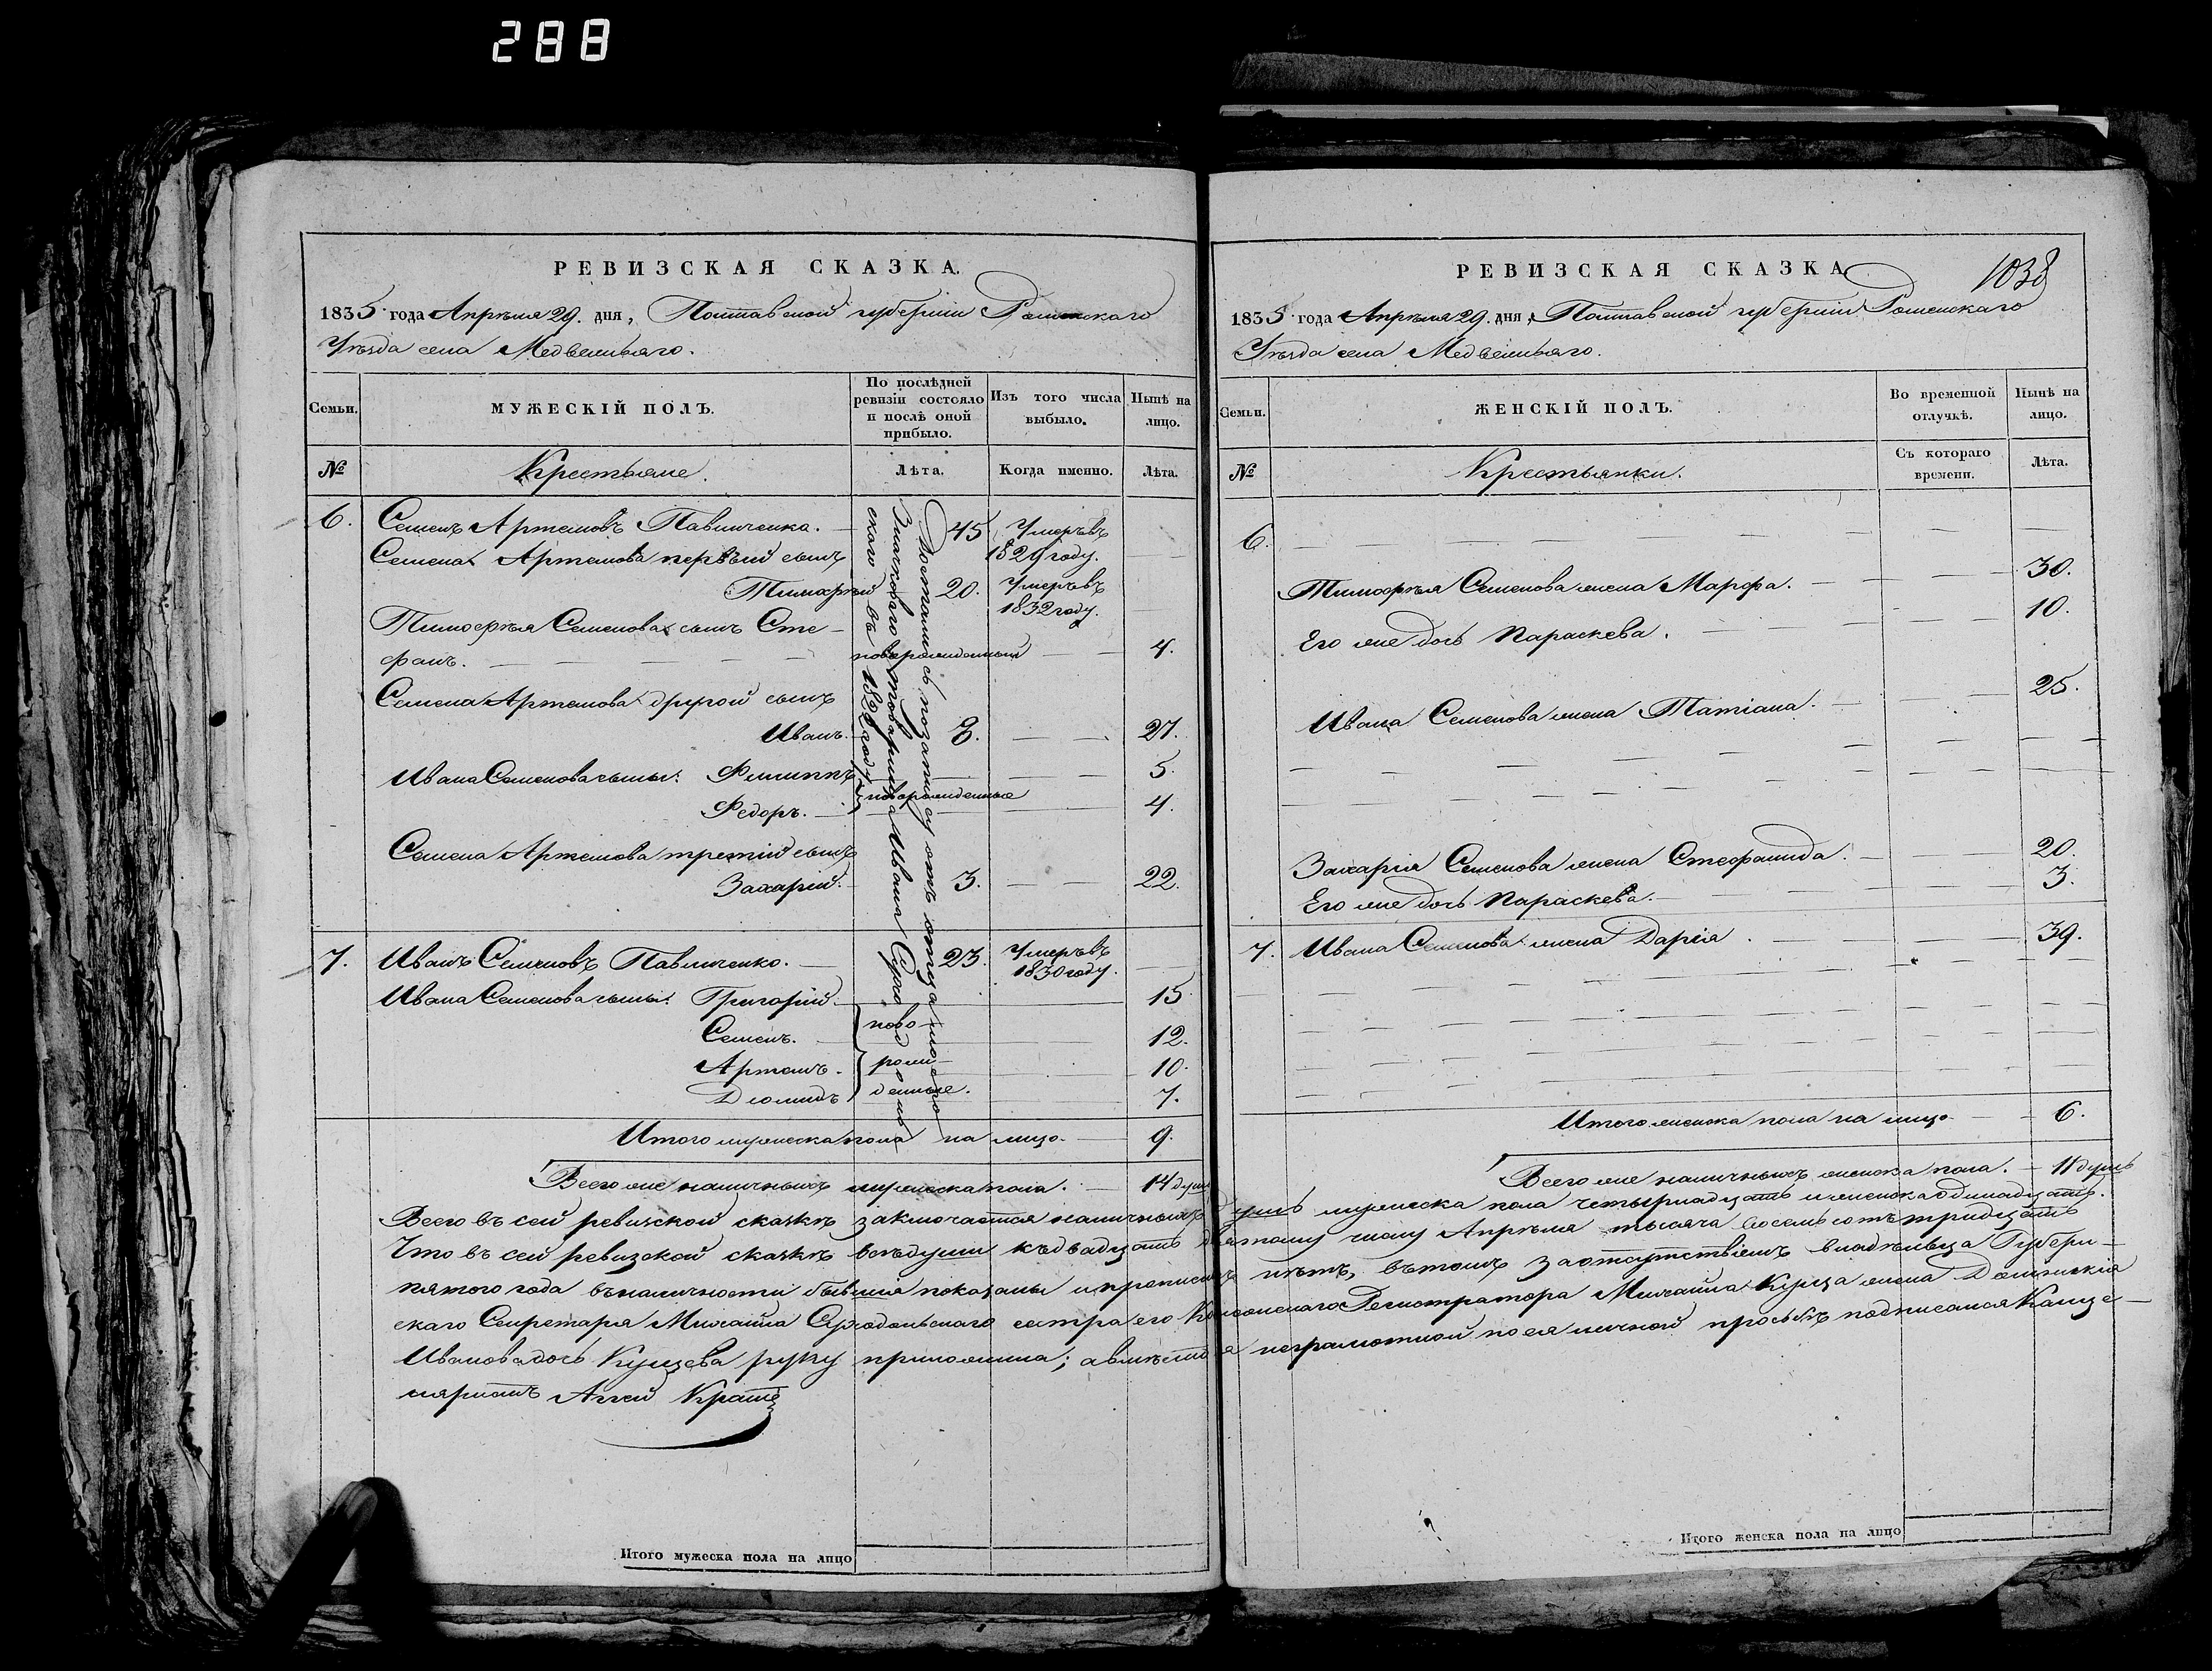 288
РЕВИЗСКАЯ СКАЗКА.
1835 года Апрѣля 29. дня, Полтавской губерніи Роменскаго
Уѣзда села Медвежьяго.
Семьи.
МУЖЕСКІЙ ПОЛЪ.
По послѣдней
ревизіи состояло
и послѣ оной
прибыло.
Изъ того числа
выбыло.
Нынѣ на
лицо.
№
Крестьяне.
Лѣта.
Когда именно.
Лѣта.
6. Семенъ Артемовъ Павличенка. 45 Умеръ въ
Семена Артемова первый сынъ 1829 году.
Тимофѣй 20. Умеръ въ
1832 году.
Тимофѣя Семенова сынъ Сте-
фанъ. новорожденный 4.
Семена Артемова другой сынъ
Иванъ. 8. 27.
Ивана Семенова сыны: Филиппъ 5.
Федоръ. новорожденные 4.
Семена Артемова третій сынъ
Захарій. 3. 22.
Достались по запису отъ отца моего
Значковаго товарища Ивана Суходоль
скаго въ году
7. Иванъ Семеновъ Павличенко. 23. Умеръ въ
1830 году.
Ивана Семенова сыны: Григорій 15.
Семенъ. ново 12.
Артемъ. рож- 10.
Діомидъ денные. 7.
Итого мужеска пола на лицо. 9.
Всего же наличныхъ мужеска пола. 14 душъ
РЕВИЗСКАЯ СКАЗКА
1038
1835 года Апрѣля 29. дня, Полтавской губерніи Роменскаго
Уѣзда села Медвежьяго.
Семьи.
ЖЕНСКІЙ ПОЛЪ.
Во временной
отлучкѣ.
Нынѣ на
лицо.
№
Крестьянки.
Съ котораго
времени.
Лѣта.
6.
Тимофѣя Семенова жена Марфа. 30.
Его же дочь Параскева. 10.
Ивана Семенова жена Татіана. 25.
Захарія Семенова жена Стефанида. 20.
Его же дочь Параскева. 3.
7. Ивана Семенова жена Дарія. 39.
Итого женска пола на лицо 6.
Всего же наличныхъ женска пола. 11 душъ
Всего въ сей ревизской сказкѣ заключается наличныхъ душъ мужеска пола четырнадцать и женска одинадцать.
Что въ сей ревизской сказкѣ всѣ души къ двадцать девятому числу Апрѣля тысяча восемь сотъ тридцать
пятого года въ наличности бывшія показаны и прописныхъ нѣтъ, въ томъ за отсутствіемъ владѣльца Губерн-
скаго Секретаря Михайла Суходольскаго сестра его Регистратора Михайла Купца жена
Иванова дочь Купцева руку приложила; а вмѣсто ея неграмотной по ея личной прозьбѣ подписался Канце-
ляристъ
Итого мужеска пола на лицо
Итого женска пола на лицо